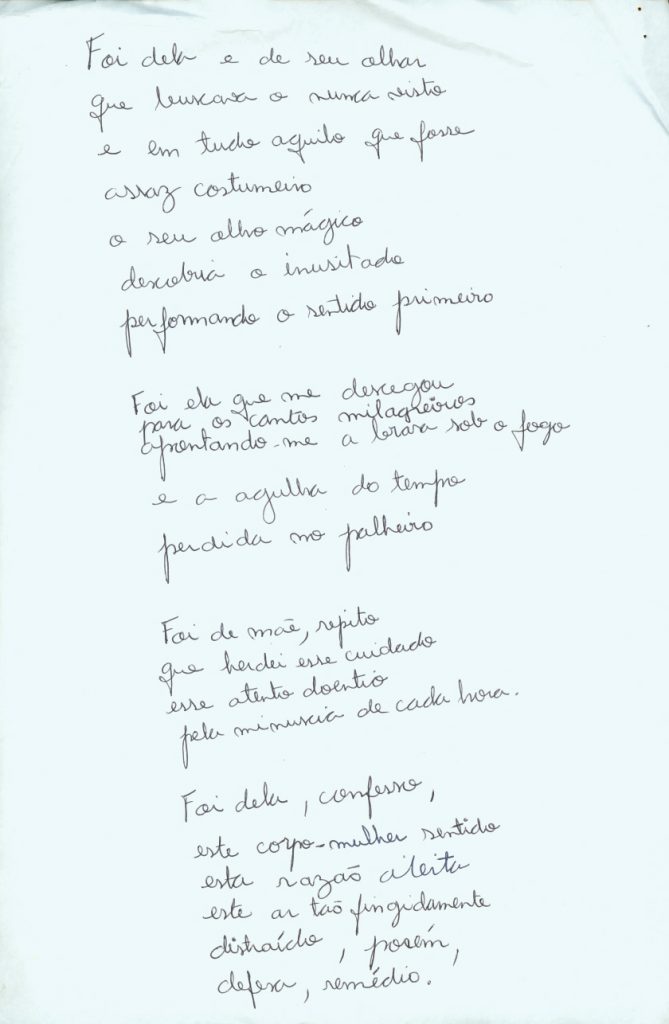 Foi dela e de seu olhar
que buscava o nunca visto
e em tudo aquilo que fosse
assaz costumeiro
o seu olho mágico
descobria o inusitado
performando o sentido primeiro
Foi ela que me descegou
para os cantos milagreiros
apontando-me a brasa sob o fogo
e a agulha do tempo
perdida no palheiro
Foi de mãe, repito
que herdei esse cuidado
esse atento doentio
pela minuscia de cada hora.
Foi dela, confesso,
este corpo-mulher sentido
esta razão alerta
este ar tão fingidamente
distraído, porém,
defesa, remédio.